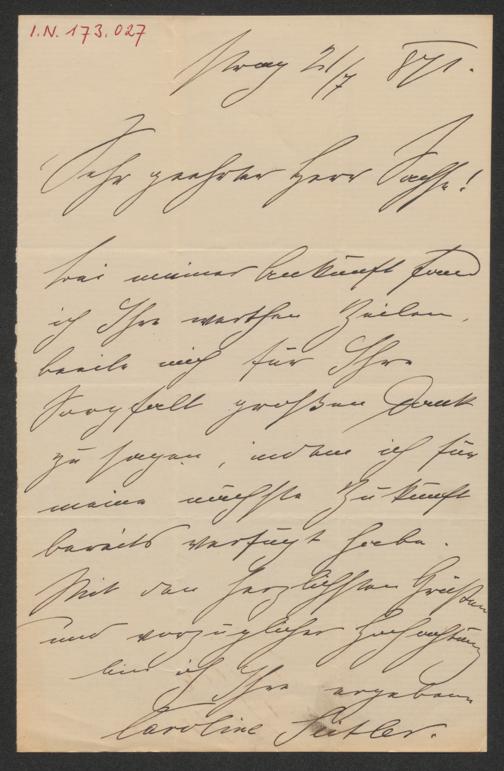 I.N. 173.027
Prag 21/7 871.
Sehr geehrter Herr Sachse!
bei meiner Ankunft fand
ich Ihre werthen Zeilen,
beeile mich für Ihre
Sorgfalt großen Dank
zu sagen, indem ich für
meine nächste Zukunft
bereits verfügt habe.
Mit den herzlichsten Grüßen
und vorzüglicher Hochachtung
bin ich Ihre ergebene
Caroline